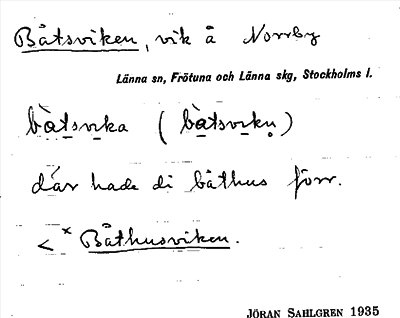 Båtsviken, vik å Norrby
Länna sn, Frötuna och Länna skg, Stockholms l.
bàtsvika (bàtsvikn̥)
där hade di båthus förr.
< *Båthusviken.
JÖRAN SAHLGREN 1935